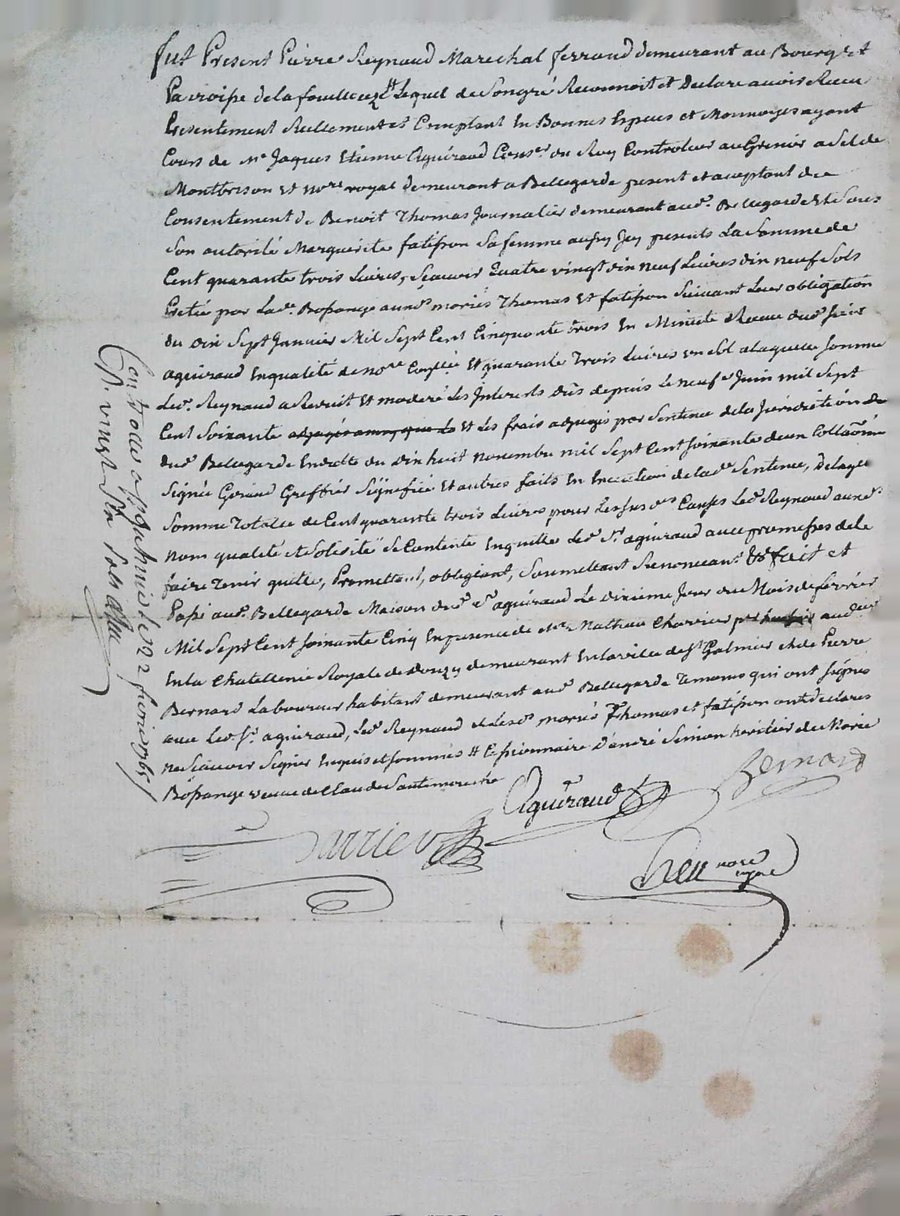 fut Present Pierre Reynaud Marechal ferrand demeurant au Bourg et
Paroisse de la fouillouze Lequel de Son gré Reconnoit et Declare auoir Receu
Presentement Reellement et Comptant En Bonnes Especes et Monnoyes ayant
Cours de Me Jaques Etienne Aguiraud Conser du Roy Controlleur au Grenier a Sel de
Montbrison et nore royal demeurant a Bellegarde present et aceptant du
Consentement de Benoit Thomas Journalier demeurant aud. Bellegarde Et Sous
Son autorité Marguerite fatisson Sa femme aussy Icy presents La Somme de
Cent quarante trois Liures, Scauoir Quatre vingt dix neuf Liures dix neuf Sols
Pretée par Lade Bossange auxds mariés Thomas Et fatisson Suiuant Leur obligation
du dix Sept Januier Mil Sept Cent Cinquante trois En Minutte Receue dud Sieur
aguiraud En qualité de nore Et quarante Trois Liures a laquelle Somme
Led. Reynaud a Reduit Et moderé Les Interets dûs depuis Le neuf Juin mil Sept
Cent Soixante Et Les frais adjugés par Sentence de la Juridiction
dud Bellegarde En datte du dix huit novembre mil Sept Cent Soixante deux
Signée Greffier Signefiée Et autres faits En Execution de lade Sentence, De laqelle
Somme Totalle de Cent quarante trois Liures pour Les susdes Causes Led. Reynaud auxd.
nom qualité et Se Contente En quitte Led. Sr aguiraud auec promesses de le
faire Tenir quitte, Promettant, obligeant, Soumettant Renonceant fait et
Passé aud. Bellegarde Maison dud. Sr aguiraud Le dixieme Jour du Mois de feurier
Mil Sept Cent Soixante Cinq En presence de Me Mathieu Charrier
En la Chatellenie Royale de donzy demeurant En la ville de St Galmier et de Pierre
Bernard Laboureur habitant demeurant aud Bellegarde Temoins qui ont Signés
auec Led. Sr aguiraud, Led. Reynaud et Lesds. mariés Thomas et fatisson ont declarés
ne Scauoir Signer Enquis et Sommés # d'andré Simon heritier de Marie
Bossange veuue de Claude
Aguiraud
Bernard
nore
royal
Controllé a St galmier le 22 feurier 1765
R. vingt Six Sols